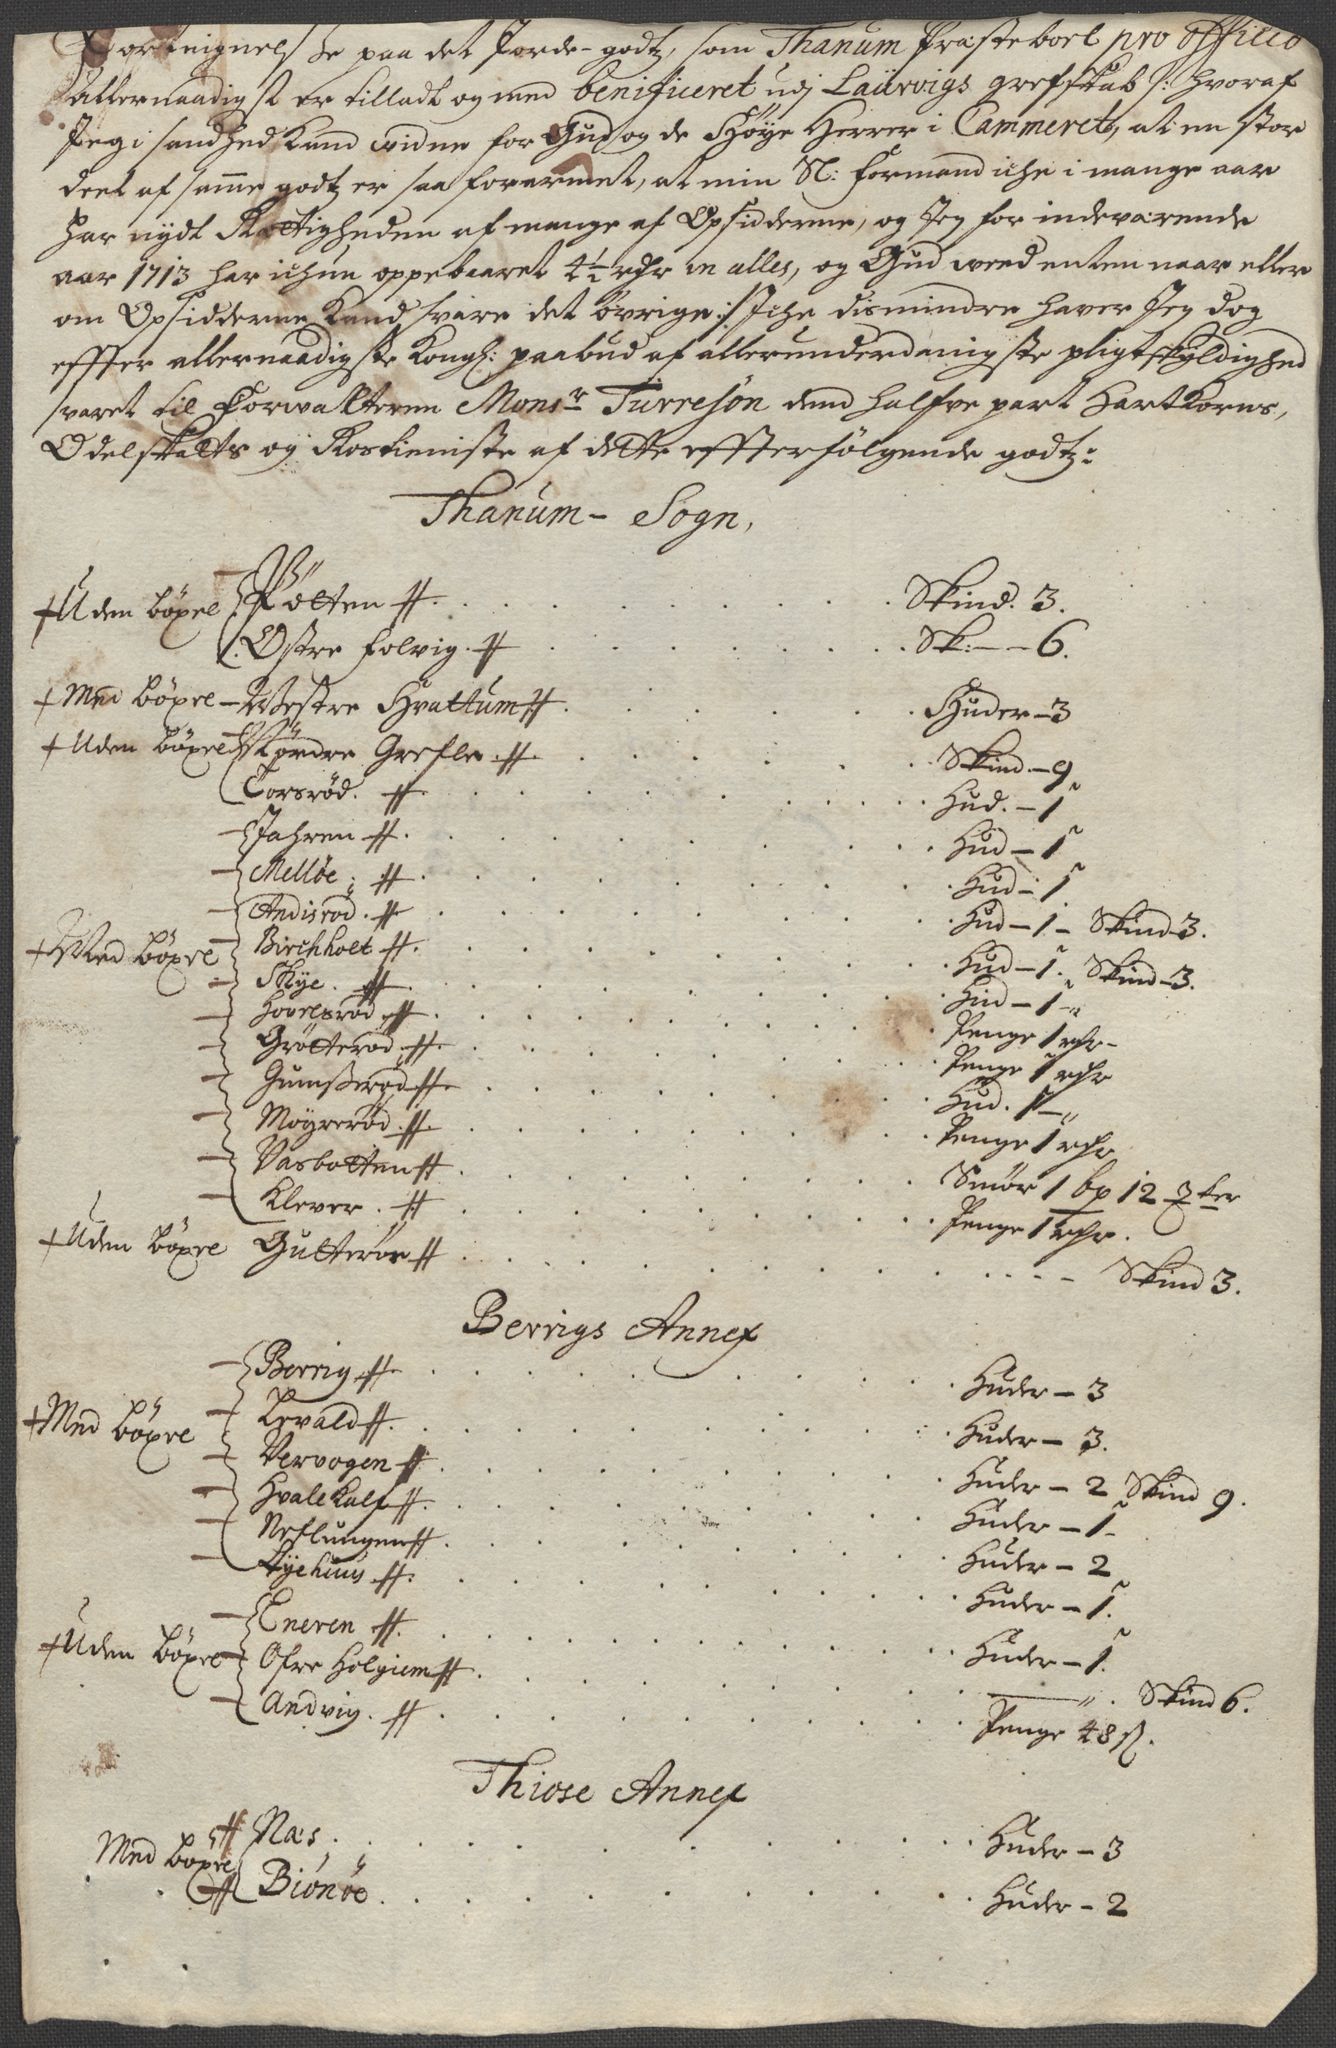 Forteignelse paa det Jorde-godtz, som Thanum Præsteboel pro officio
allernaadigst er tilladt og med benificeret udj Laürvigs grefskab /: hvoraf
Jeg i sandhed kand widne for Gud og de Høÿe Herrer i Cammeret, at en stor
deel af samme godtz er saa forarmet, at min Sl: Formand iche i mange aar
har nÿdt Rettigheden af mange af Opsidderne, og Jeg for indeværende
aar 1713 har ichun oppebaaret 4½ rdr in alles, og Gud weed enten naar eller
om Opsidderne kand svare det övrige :/ Iche dismindre haver Jeg dog
effter allernaadigste Kongl: paabud af allerunderdanigste pligtskÿldighed
svaret til Forwalteren Monsr Turreson dend halfve part Hartkorns,
Odelskatts og Rostieniste af dette effterfölgende godtz:
Thanum - Sogn,
+ Uden böxel Pötten . . . Skind. 3.
Östre Folvig . . . Sk: - - 6.
+ Med böxel - Westre Hvattum . . . Huder - 3
+ Uden böxel Nordre Grefle . . . Skind - 9
Torsröd. . . . Hud. - 1
Jahren . . . Hud - 1
Mellöe . . . Hud - 1
Andisröd . . . Hud - 1 - Skind 3.
+ Med böxel Birchholt . . . Hud - 1. Skind - 3.
Skÿe . . . Hud - 1
Hovelsröd . . . Penge 1 rdr -
Grötteröd . . . Penge 1 rdr
Gumseröd . . . Hud. 1 -
Möÿreröd . . . Penge 1 rdr
Vasbotten . . . Smör 1 bp 12 ter
Klever . . . Penge 1 rdr.
+ Uden böxel Gulteröe . . . Skind 3.
Berrigs Annex
Berrig . . . Huder - 3
+ Med böxel Levald . . . Huder - 3.
Vervogen . . . Huder - 2 Skind 9.
Hvalekalf . . . Huder - 1 -
Neflungen . . . Huder - 2
Aÿehuus . . . Huder - 1.
Eneren . . . Huder - 1.
+ Uden böxel Ofre Holgiem . . . Skind 6.
Andvig . . . Penge 48 s.
Thiose Annex
Næs . . . Huder - 3
Med böxel
Biönöe . . . Huder - 2